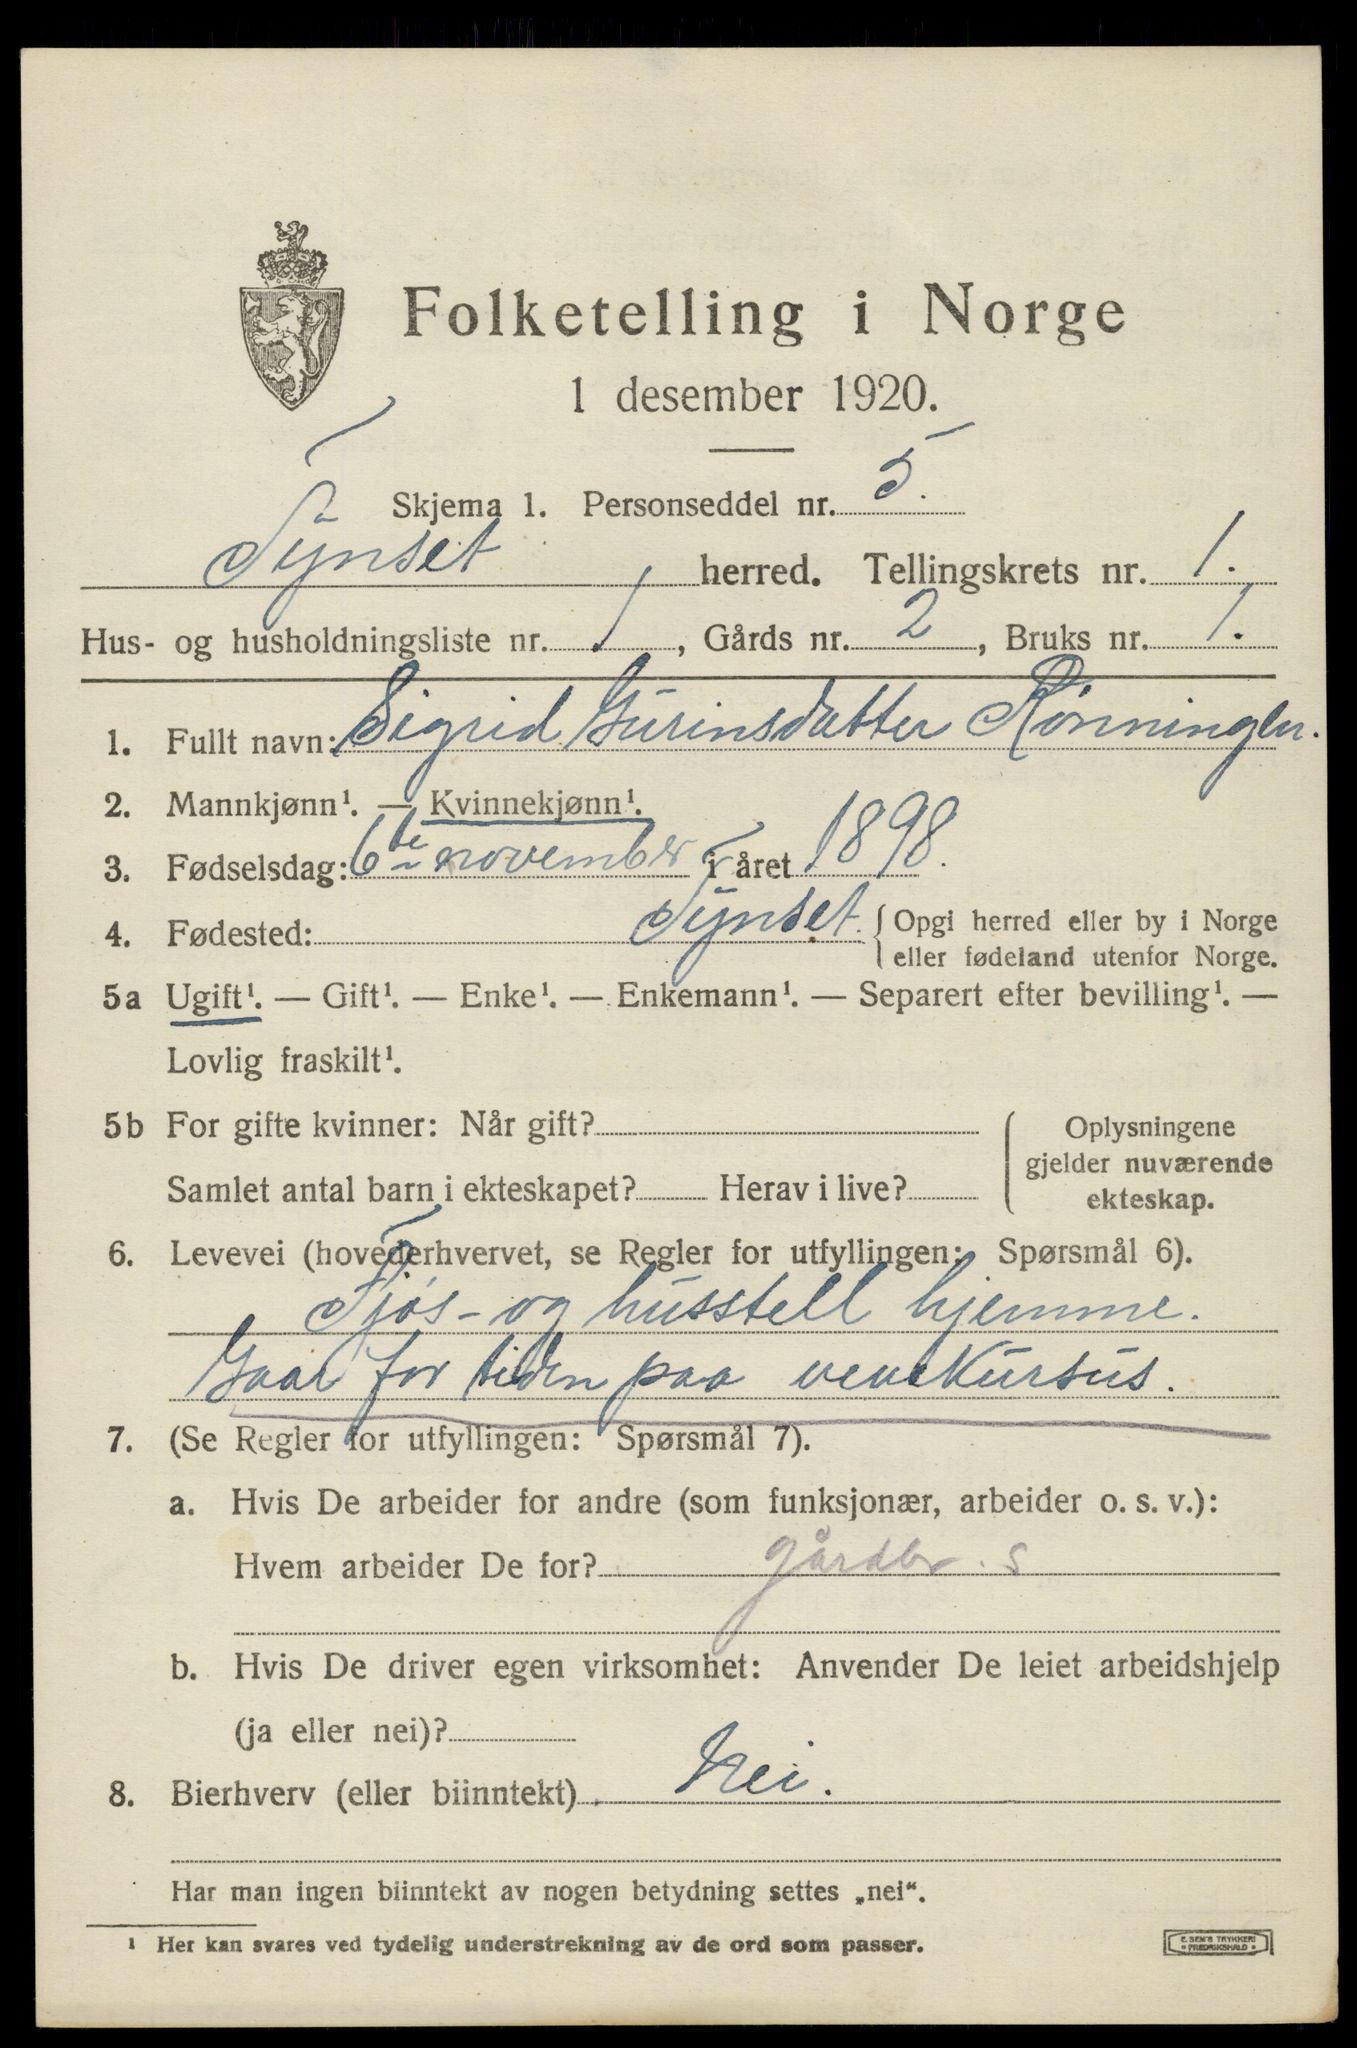 Folketelling i Norge
1 desember 1920.
Skjema 1. Personseddel nr. 5.
Tynset herred. Tellingskrets nr. 1.
Hus- og husholdningsliste nr. 1, Gårds nr. 2, Bruks nr. 1.
1. Fullt navn: Sigrid Gurinsdatter Rønninglen.
2. Mannkjønn¹. — Kvinnekjønn¹.
3. Fødselsdag: 6te november i året 1898.
4. Fødested: Tynset. { Opgi herred eller by i Norge
eller fødeland utenfor Norge.
5a Ugift¹. — Gift¹. — Enke¹. — Enkemann¹. — Separert efter bevilling¹. —
Lovlig fraskilt¹.
5b For gifte kvinner: Når gift?
Samlet antal barn i ekteskapet? Herav i live?
Oplysningene
gjelder nuværende
ekteskap.
6. Levevei (hovederhvervet, se Regler for utfyllingen: Spørsmål 6).
Fjøs- og husstell hjemme.
Gaar for tiden paa vevekursus.
7. (Se Regler for utfyllingen: Spørsmål 7).
a. Hvis De arbeider for andre (som funksjonær, arbeider o. s. v.):
Hvem arbeider De for? gårdbr. s
b. Hvis De driver egen virksomhet: Anvender De leiet arbeidshjelp
(ja eller nei)?
8. Bierhverv (eller biinntekt) Nei.
Har man ingen biinntekt av nogen betydning settes „nei“.
¹ Her kan svares ved tydelig understrekning av de ord som passer.
E. SEM'S TRYKKERI
• FREDRIKSHALD •